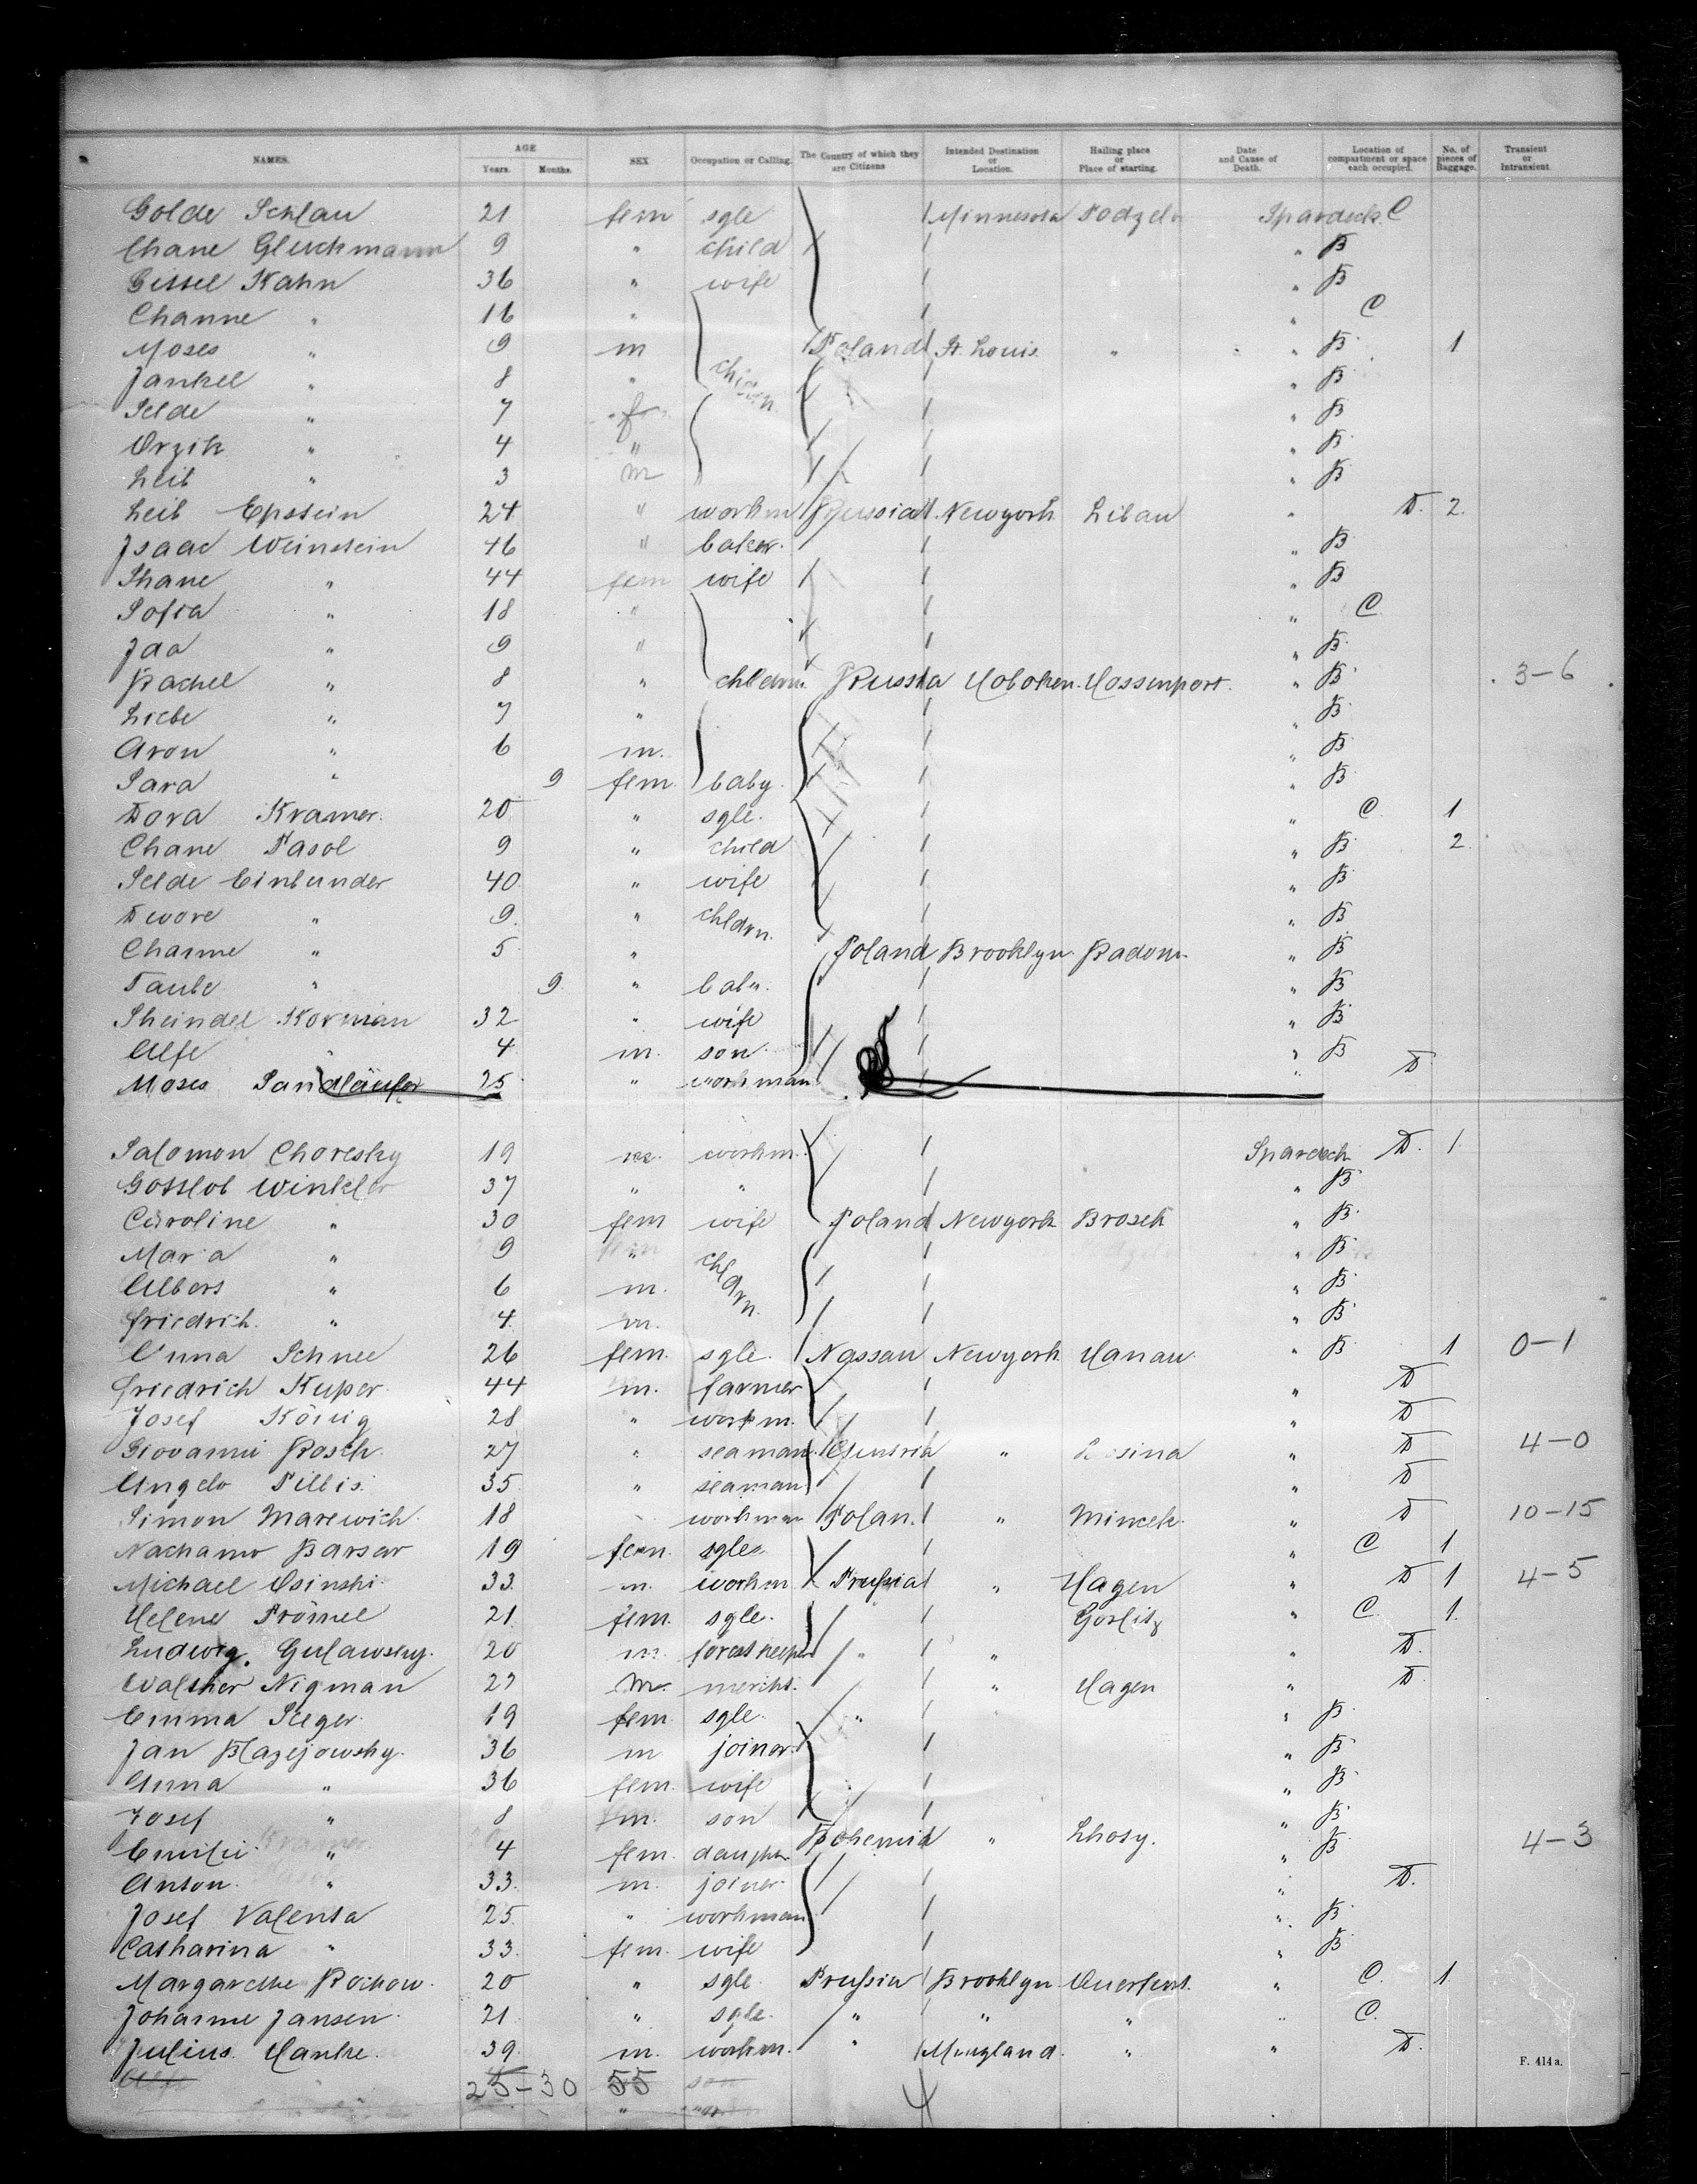 NAMES. AGE Years. Months. SEX Occupation or Calling. The Country of which they are Citizens Intended Destination or Location. Hailing place or Place of starting. Date and Cause of Death. Location of compartment or space each occupied. No. of pieces of Baggage. Transient or Intransient.
Golde Schlau 21 fem sgle Minnesota Spardeck C
Chane Gluckmann 9 " child " B
Gissel Kahn 36 " wife " B
Channe " 16 " " C
Moses " 9 m Poland St. Louis " " B 1
Jankel " 8 " " B
Selde " 7 f " B
Orzik " 4 " " B
Leib " 3 m " B
Leib Epstein 24 " workm Russia Newyork Libau " D. 2.
Isaac Weinstein 46 " baker. " B
Shane " 44 fem wife " B
Sofia " 18 " " C
Jda " 9 " " B
Rachel " 8 " chldrn. Russia Hoboken. " B 3-6
Liebe " 7 " " B
Aron " 6 m. " B
Sara " 9 fem baby. " B
Dora Kramer. 20 " sgle. " C. 1
Chane Pasol 9 " child " B 2
Selde Einbunder 40 " wife " B
Dwore " 9. " chldrn. " B
Channe " 5 " Poland Brooklyn Radom. " B
Taube " 9. " " B
Sheindel Korman 32 " wife " B
" 4 m. son " B
Moses Sandläufer 25 " workman " D
Salomon Choresky 19 m. workm. Spardeck D. 1
Gottlob Winkler 37 " " " B
Caroline " 30 fem wife Poland Newyork Brosek " B.
Maria " 9 " chldrn. " B
Albert " 6 m. " B
Friedrich. " 4. m. " B
Anna Schnee 26 fem. sgle. Nassau Newyork Hanau " B 1 0-1
Friedrich Kuper 44 m. farmer " D
Josef König 28 " workm. " D
Giovanni Rosch. 27 " seaman. " " D 4-0
Angelo Pillis. 35. " seaman " D
Simon Marewich. 18 workman Polan. " Minsek. " D 10-15
19 fem. sgle. " C 1
Michael Osinski 33. m. workm Prussia " Hagen " D 1 4-5
Helene Prömel 21. fem. sgle. Gorlitz " C 1.
Ludwig. Gulawsky. 20 m. forestkeeper " " " D.
Walther Nigman 27 m. mercht. " Hagen " D
Emma Seeger 19 fem sgle. " " B.
Jan Blazejowsky. 36 m joiner " B
Anna " 36 fem. wife " B
Josef " 8 m. son " B
Emilie " 4 fem. daughter Bohemia " Lhosy. " B 4-3
Anton. " 33. m. joiner " D.
Josef Valenta 25. " workman " B
Catharina " 33. fem. wife " B
Margarethe Rochow. 20 " sgle. Prussia Brooklyn Querfurt. " C. 1
Johanne Jansen. 21. " sgle. " " " " C.
Julius Hanke. 39. m. workm. " " " D.
F. 414a.
25-30 55 son